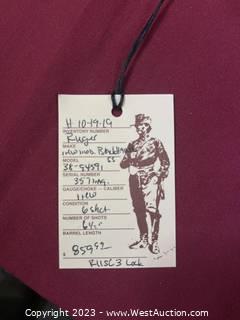 H 10-19-19
INVENTORY NUMBER
Ruger
MAKE
New Mod. Blackhawk
MODEL SS
38-54591
SERIAL NUMBER
357 mag.
GAUGE/CHOKE - CALIBER
new
CONDITION
6 shot
NUMBER OF SHOTS
6½"
BARREL LENGTH
$ 859.52
Lock
Copyright 2023 - www.WestAuction.com